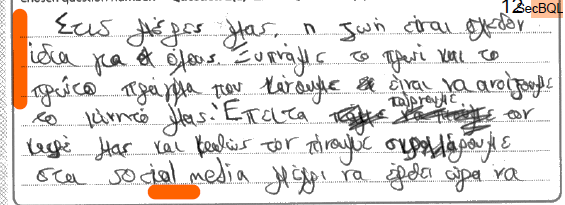 12 SecBQL
Στις μέρες μας, η ζωή είναι σχεδόν
ίδια για όλους. Ξυπνάμε το πρωί και το
πρώτο πράγμα που κάνουμε είναι να ανοίξουμε
το κινητό μας. Έπειτα παίρνουμε τον
καφέ μας και καθώς τον πίνουμε σκρολλάρουμε
στα social media μέχρι να έρθει ώρα να